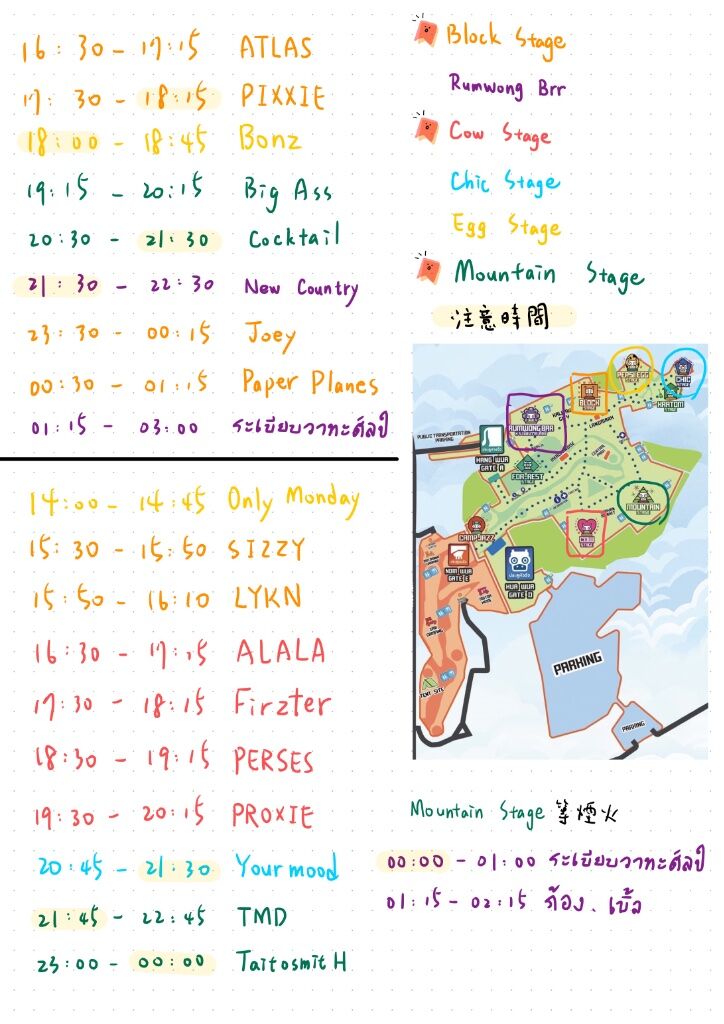 16:30 - 17:15 ATLAS
17:30 - 18:15 PIXXIE
18:00 - 18:45 Bonz
19:15 - 20:15 Big Ass
20:30 - 21:30 Cocktail
21:30 - 22:30 New Country
23:30 - 00:15 Joey
00:30 - 01:15 Paper Planes
01:15 - 03:00 ระเบียบวาทะศิลป์
14:00 - 14:45 Only Monday
15:30 - 15:50 SIZZY
15:50 - 16:10 LYKN
16:30 - 17:15 ALALA
17:30 - 18:15 Firzter
18:30 - 19:15 PERSES
19:30 - 20:15 PROXIE
20:45 - 21:30 Yourmood
21:45 - 22:45 TMD
23:00 - 00:00 TaitosmitH
Block Stage
Rumwong Brr
Cow Stage
Chic Stage
Egg Stage
Mountain Stage
注意時間
PEPSI EGG
CHIC
STAGE
BLOCK
KRATOM
RUMWONG BAR
PUBLIC TRANSPORTATION
PARKING
HANG WUA
GATE A
FOR-REST
MOUNTAIN
COW
STAGE
CAMP JAZZ
NOM WUA
GATE E
ประตูหัววัว
HUA WUA
GATE D
PARKING
TENT SITE
PARKING
Mountain Stage 等煙火
00:00 - 01:00 ระเบียบวาทะศิลป์
01:15 - 02:15 ก้อง、เบิ้ล